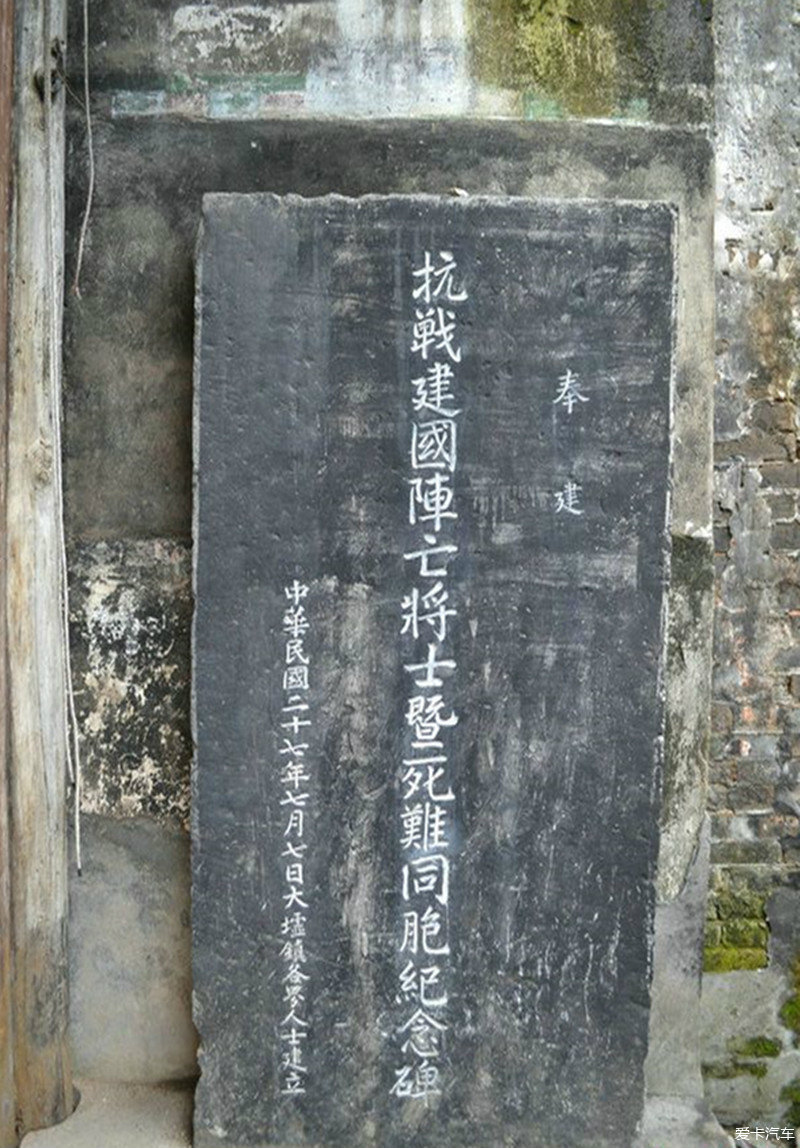 奉建
抗戰建國陣亡將士暨死難同胞紀念碑
中華民國二十七年七月七日大墟鎮各界人士建立
爱卡汽车